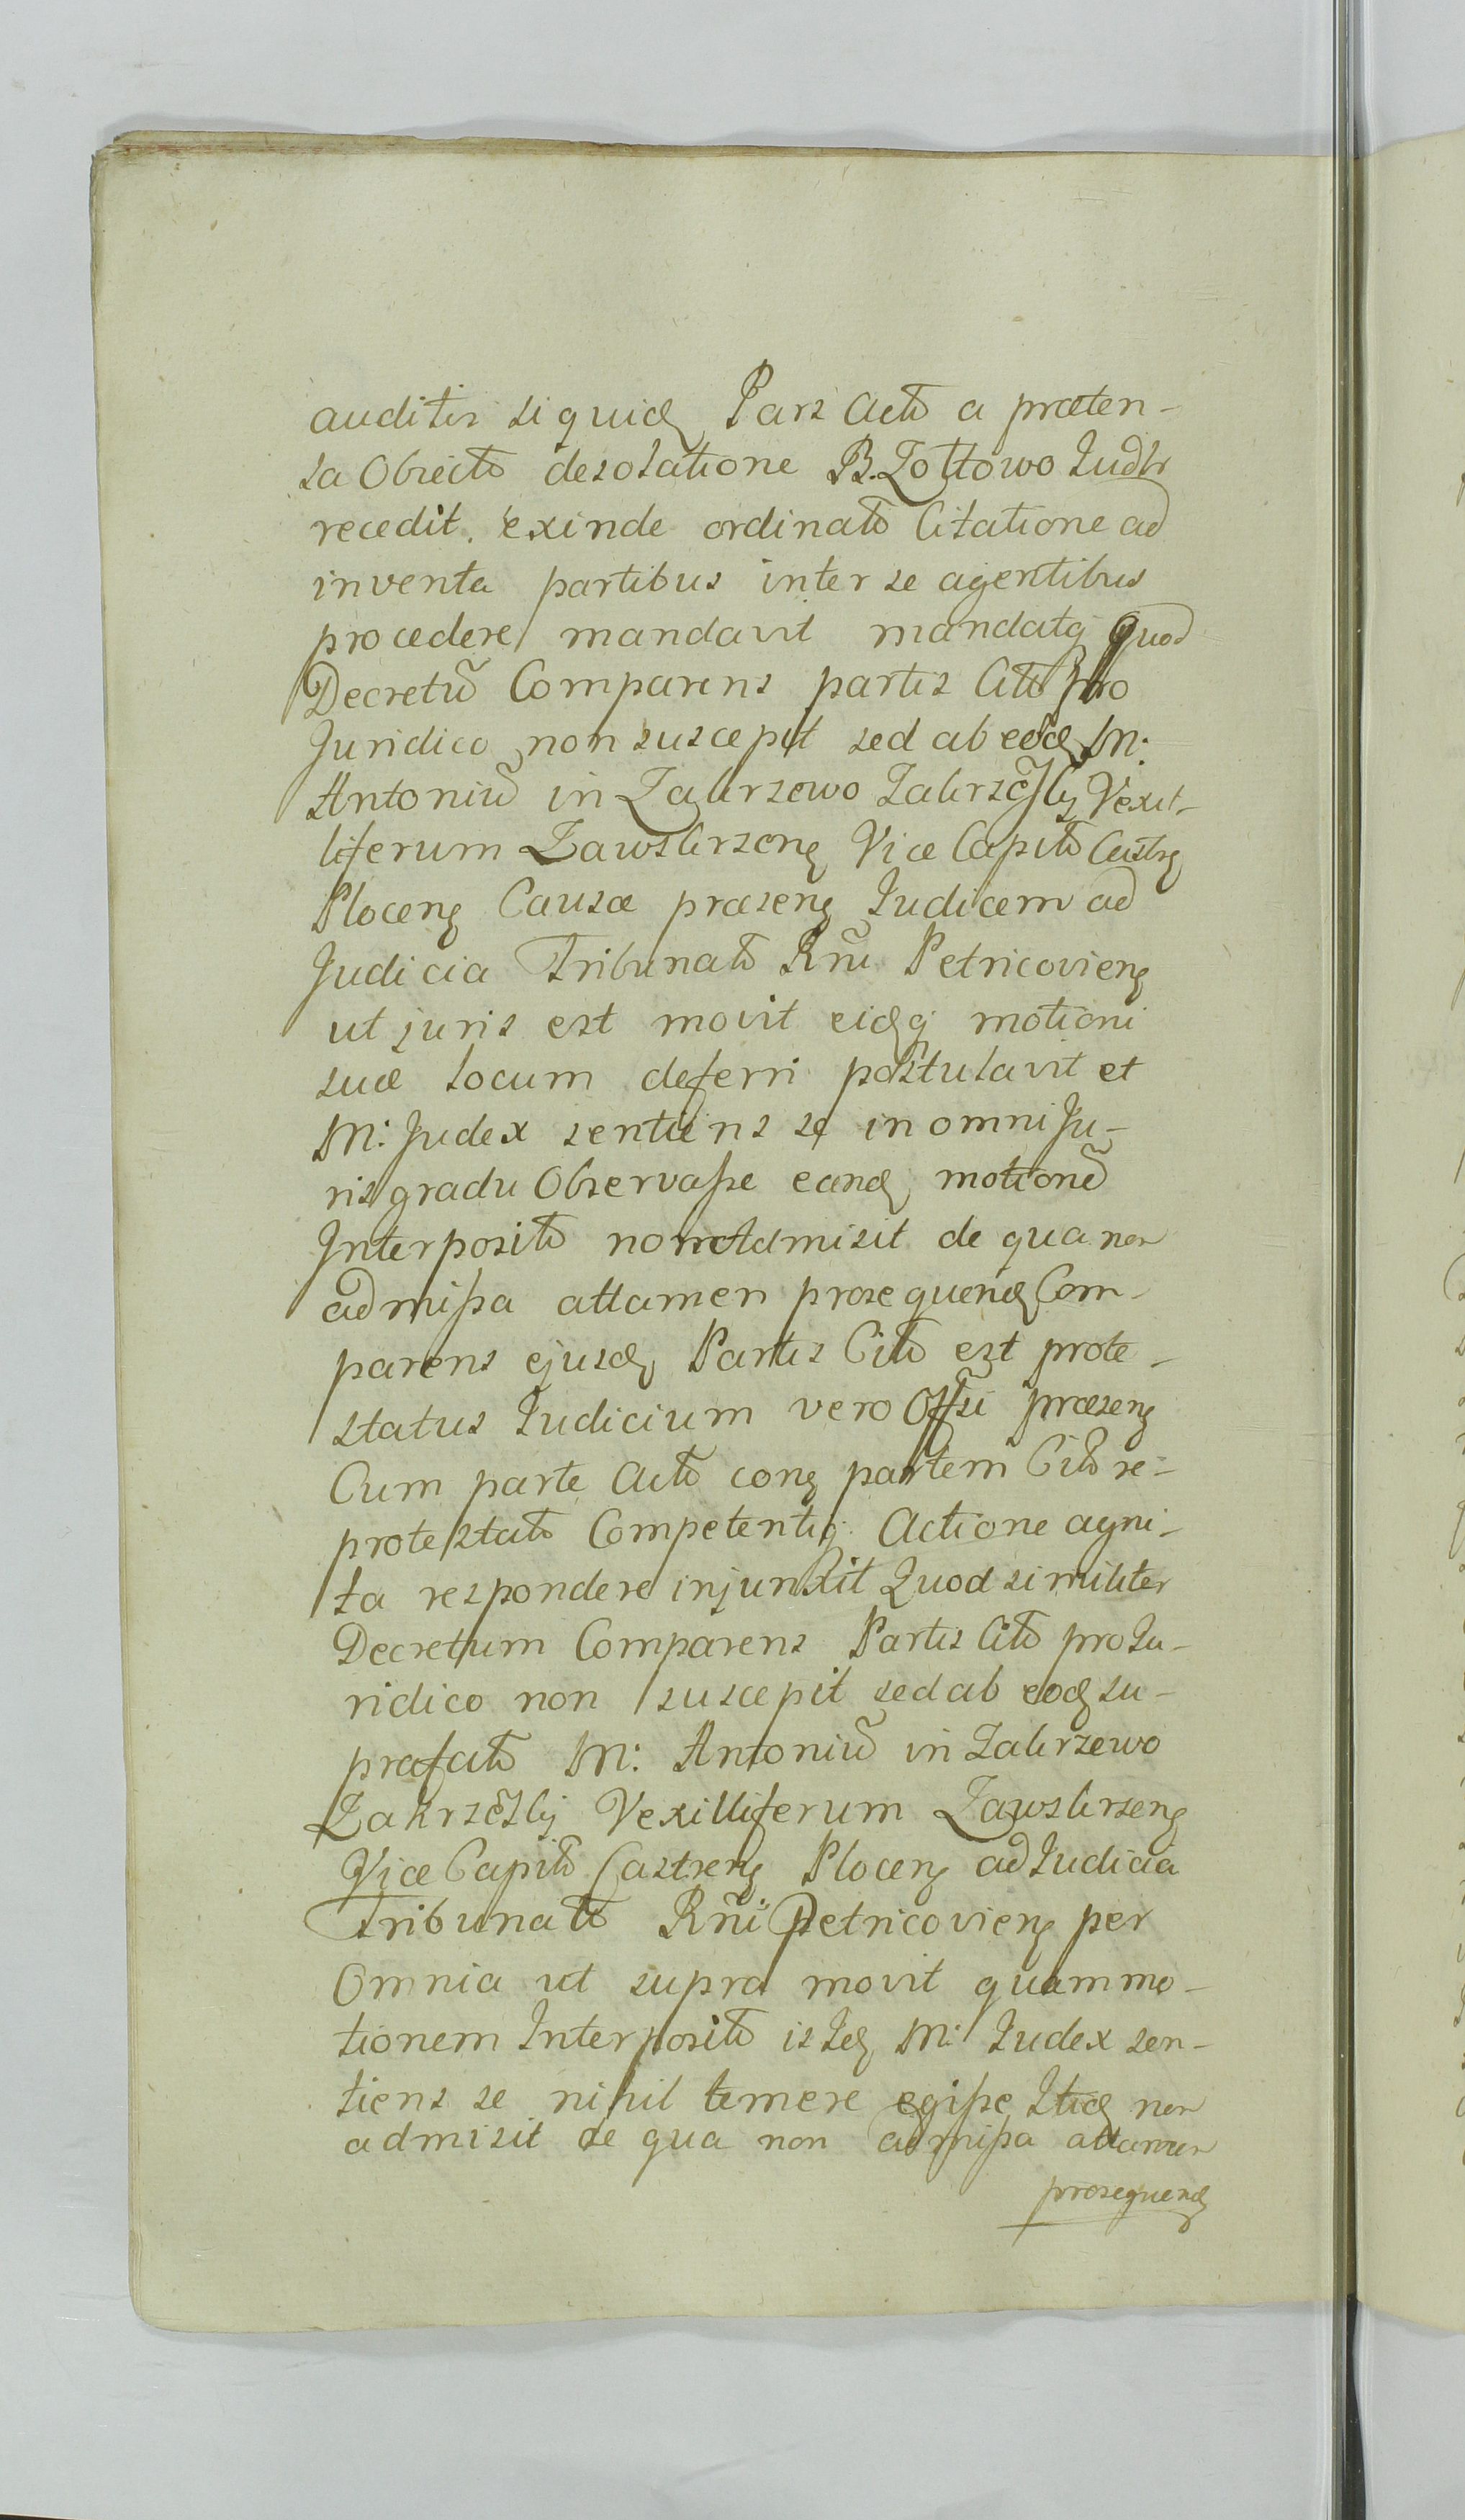 auditis siquid Pars Acto a præten-
sa Obiecto desolatione B. Zottowo Judlr
recedit. exinde ordinato Citatione ad
inventa partibus inter se agentibus
procedere mandavit mandatq quod
Decretu͠ Comparens partis Cito pro
Juridico non suscepit sed ab eod M:
Antoniu͠ in Zakrzewo Zakrze͠skj Vexil-
liferum Zawskrzen Vice Capito Castren
Plocen Causæ præsen Judicem ad
Judicia Tribunato Rni͠ Petricovien
ut juris est movit eidq motioni
suæ locum deferri postulavit et
M: Judex sentiens se in omni Ju-
ris gradu Observaſse eand motione͠
Interposito non Admisit de qua non
admiſsa attamen prosequend Com-
parens ejusd Partis Cito est prote-
status Judicium vero Offsi͠ præsen
Cum parte Acto con partem Cito re-
protestato Competentiq Actione agni-
ta respondere injunxit Quod similiter
Decretum Comparens Partis Cito pro Ju-
ridico non suscepit sed ab eod su-
prafato M: Antoniu͠ in Zakrzewo
Zakrze͠skj Vexilliferum Zawskrzen
Vice Capito Castren Plocen ad Judicia
Tribunato Rni͠ Petricovien per
Omnia ut supra movit quam mo-
tionem Interposito isted M: Judex sen-
tiens se nihil temere egiſse Itid non
admisit de qua non admiſsa attamen
prosequend